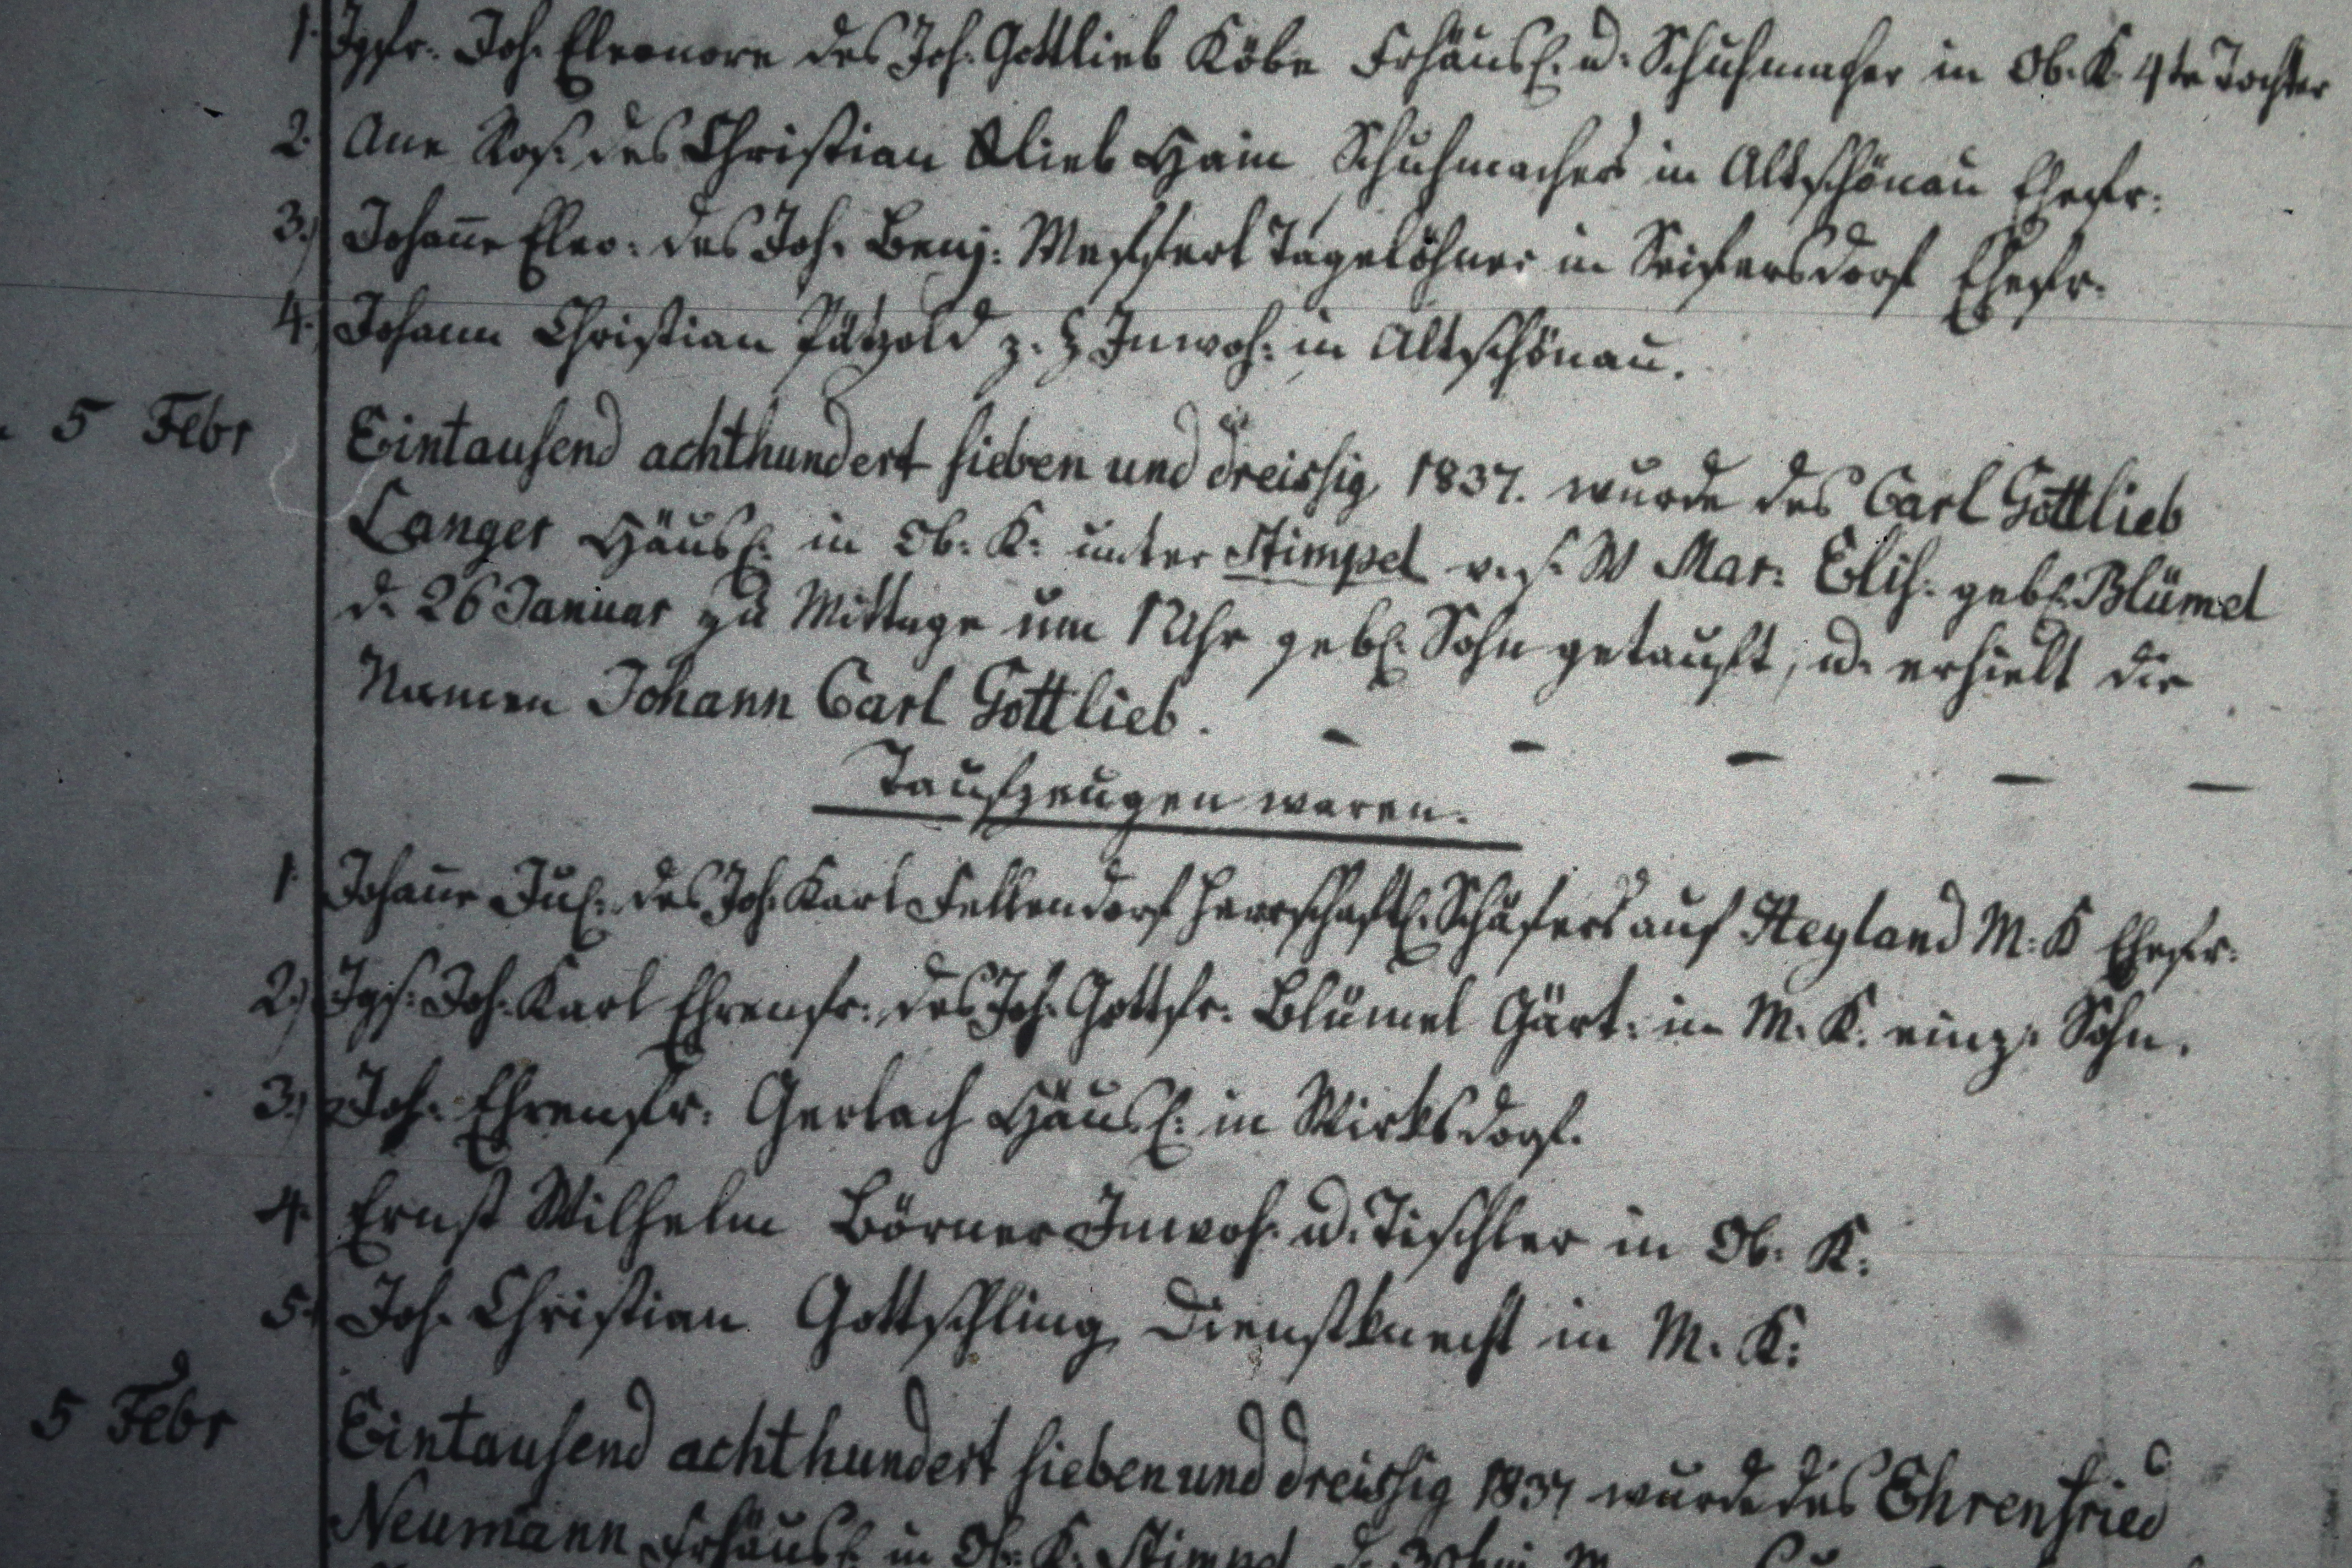 1. Jgfr. Joh. Eleonore des Joh. Gottlieb Köbe Frhäusl. u. Schuhmacher in Ob. K. 4te Tochter
2. Ane Ros. des Christian Glieb Hain Schuhmachers in Altschönau Ehefr:
3.) Johañe Eleo: des Joh. Benj: Meffert Tagelöhner in Seifersdorf Ehefr.
4.) Johann Christian Pätzold z. Z Inwoh: in Altschönau.
5 Febr Eintausend achthundert sieben und dreissig 1837. wurde des Carl Gottlieb
Langer Häusl: in Ob: K: unter Stimpel v. s. W Mar: Elis: gebl. Blümel
d. 26 Januar zu Mittage um 12 Uhr gebl. Sohn getauft, u. erhielt die
Namen Johann Carl Gottlieb. - - - - -
Taufzeugen waren.
1. Johañe Jul: des Joh. Karl Fellendorf herrschaftl. Schäfers auf Heyland M. K Ehefr.
2.) Jgs. Joh. Karl Ehrenfr: des Joh. Gottfr. Blümel Gärt: in M. K. einz: Sohn.
3.) Joh. Ehrenfr. Gerlach Häusl: in Wirksdorf.
4. Ernst Wilhelm Börner Inwoh. u. Tischler in Ob. K:
5. Joh. Christian Gottschling Dienstknecht in M. K:
5 Febr Eintausend achthundert sieben und dreissig 1837 wurde des Ehrenfried
Neumann Frhäusl. in Ob. K: Stimpel